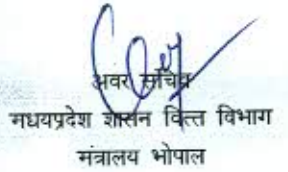 अवर सचिव
मध्यप्रदेश शासन वित्त विभाग
मंत्रालय भोपाल